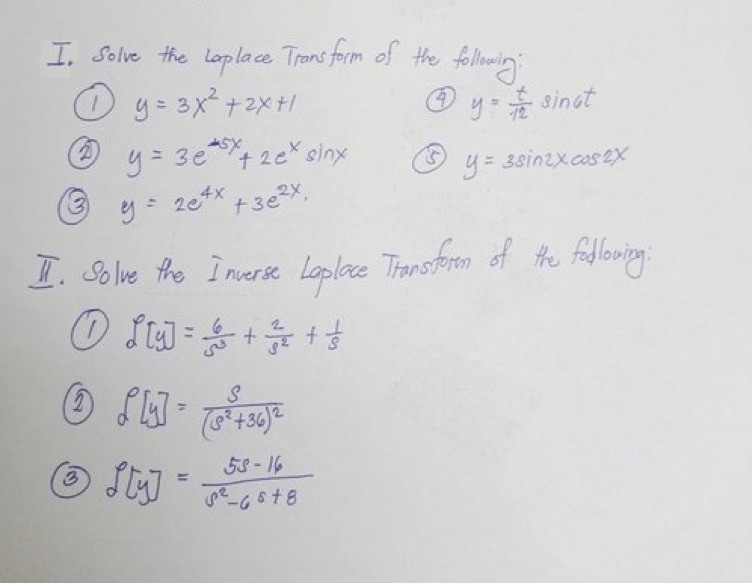 I. Solve the Laplace Transform of the following:
① y = 3x² + 2x + 1
② y = 3e⁻⁵ˣ + 2eˣ sinx
③ y = 2e⁴ˣ + 3e²ˣ.
④ y = t/12 sin6t
⑤ y = 3sin2x cos2x
II. Solve the Inverse Laplace Transform of the following:
① ℒ[y] = 6/s³ + 2/s² + 1/s
② ℒ[y] = s/(s²+36)²
③ ℒ[y] = 5s-16/s²-6s+8